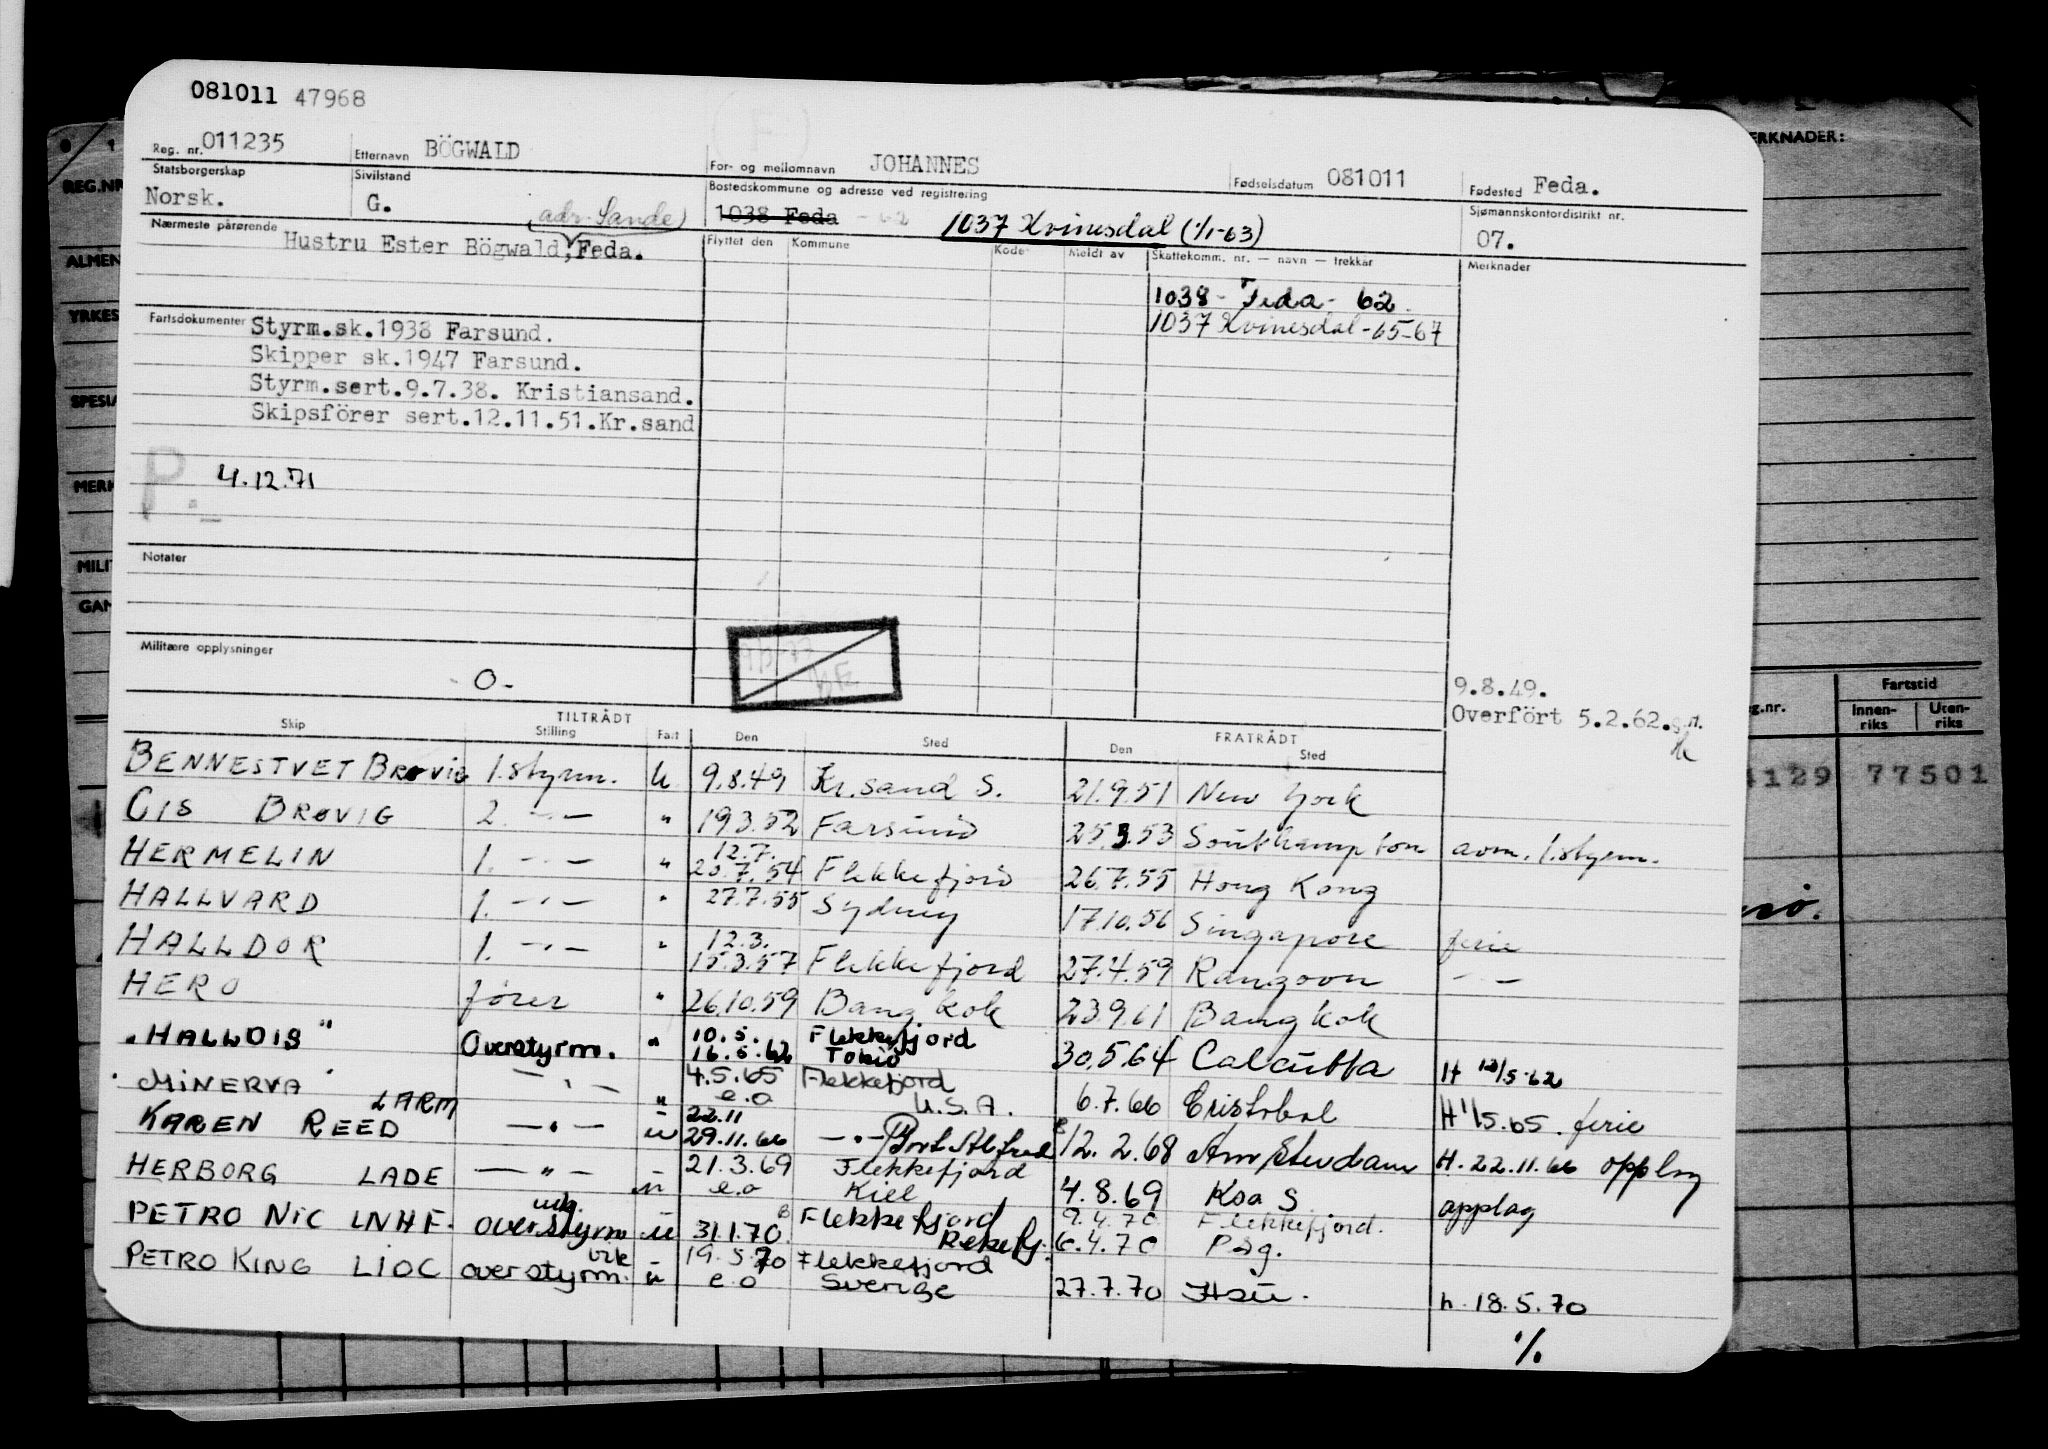 081011 47968
Reg. nr. 011235 Etternavn BÖGWALD For- og mellomnavn JOHANNES Fødselsdatum 081011 Fødested Feda.
Statsborgerskap Norsk. Sivilstand G. Bostedskommune og adresse ved registrering 1038 Feda - 62 1037 Kvinesdal (1/1-63) Sjømannskontordistrikt nr. 07.
(adr. Sande)
Nærmeste pårørende Hustru Ester Bögwald, Feda. Flyttet den Kommune Kode Meldt av Skattekomm. nr. — navn — trekkår Merknader
1038 - Feda - 62.
1037 Kvinesdal - 65-67
Fartsdokumenter Styrm.sk.1938 Farsund.
Skipper sk.1947 Farsund.
Styrm.sert.9.7.38. Kristiansand.
Skipsförer sert.12.11.51.Kr.sand
P. 4.12.71
Notater
Militære opplysninger
- O -
9.8.49.
Overfört 5.2.62.
TILTRÅDT FRATRÅDT
Skip Stilling Fart Den Sted Den Sted
BENNESTVET BRØVIG 1.styrm. u 9.8.49 Kr.sand S. 21.9.51 New York
CIS BRØVIG 2. -"- " 19.3.52 Farsund 25.3.53 Southampton avm. 1.styrm.
HERMELIN 1. -"- " 12.7. 20.7.54 Flekkefjord 26.7.55 Hong Kong
HALLVARD 1. -"- " 27.7.55 Sydney 17.10.56 Singapore ferie
HALLDOR 1. -"- " 12.3. 15.3.57 Flekkefjord 27.4.59 Rangoon -"-
HERO fører " 26.10.59 Bangkok 23.9.61 Bangkok
"HALLDIS" Overstyrm. " 10.5. Flekkefjord
16.5.62 Tokio 30.5.64 Calcutta H 10/5-62
"MINERVA" -"- 4.5.65 Flekkefjord
" e.o U.S.A. 6.7.66 Cristobal H 1/5.65. ferie
KAREN REED LARM -"- u 22.11
29.11.66 -"- Port Alfred 12.2.68 Amsterdam H. 22.11.66 opplag
HERBORG LADE -"- u 21.3.69 Flekkefjord
e.o Kiel 4.8.69 Ksa S opplag
PETRO NIC LNHF. overstyrm. u 31.1.70 Flekkefjord 9.4.70 Flekkefjord.
Rekefj. 6.4.70 Psg.
PETRO KING LIOC overstyrm. u 19.5.70 Flekkefjord
e o Sverige 27.7.70 h. 18.5.70
%
REG.NR
YRKES
MERKNADER:
Fartstid
Innen-riks Uten-riks
4129 77501